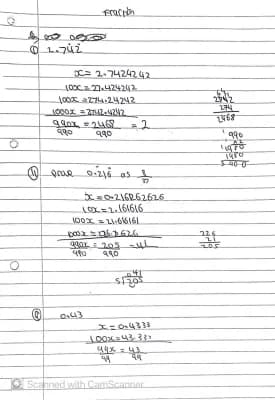 Fraction
① 2.742
x = 2.7424242
10x = 27.424242
100x = 274.24242
1000x = 2742.4242
990x = 2468 = 2
990 990
2742
274
2468
990
1980
1980
⑪ prove 0.216 as 8
37
x = 0.216262626
10x = 2.161616
100x = 21.61616
990x = 205 = 41
990 990
226
21
205
41
5√205
0.43
x = 0.4333
100x = 43.333
99x = 43
99 99
Scanned with CamScanner